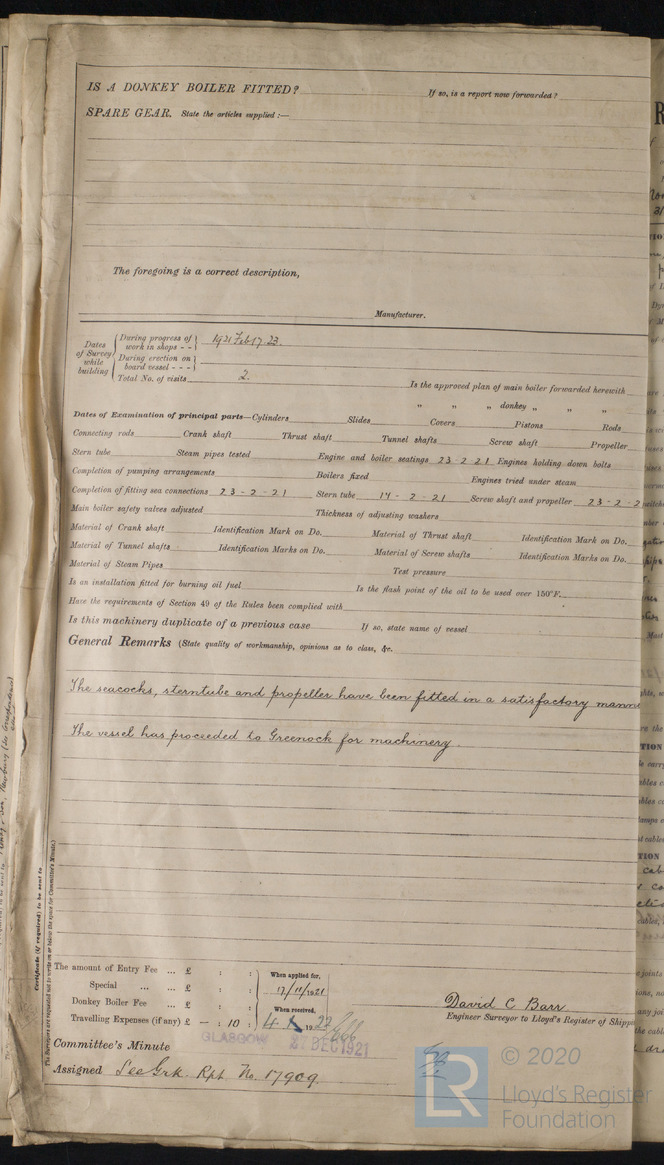 IS A DONKEY BOILER FITTED? If so, is a report now forwarded?
SPARE GEAR. State the articles supplied :—
The foregoing is a correct description,
Manufacturer.
Dates of Survey while building
During progress of work in shops - - 1921 Feb 17. 23.
During erection on board vessel - - -
Total No. of visits 2.
Is the approved plan of main boiler forwarded herewith
" " " donkey " " "
Dates of Examination of principal parts—Cylinders Slides Covers Pistons Rods
Connecting rods Crank shaft Thrust shaft Tunnel shafts Screw shaft Propeller
Stern tube Steam pipes tested Engine and boiler seatings 23-2-21 Engines holding down bolts
Completion of pumping arrangements Boilers fixed Engines tried under steam
Completion of fitting sea connections 23-2-21 Stern tube 17-2-21 Screw shaft and propeller 23-2-2
Main boiler safety valves adjusted Thickness of adjusting washers
Material of Crank shaft Identification Mark on Do. Material of Thrust shaft Identification Mark on Do.
Material of Tunnel shafts Identification Marks on Do. Material of Screw shafts Identification Marks on Do.
Material of Steam Pipes Test pressure
Is an installation fitted for burning oil fuel Is the flash point of the oil to be used over 150°F.
Have the requirements of Section 49 of the Rules been complied with
Is this machinery duplicate of a previous case If so, state name of vessel
General Remarks (State quality of workmanship, opinions as to class, &c.
The seacocks, sterntube and propeller have been fitted in a satisfactory mann
The vessel has proceeded to Greenock for machinery.
Certificate (if required) to be sent to
The Surveyors are requested not to write on or below the space for Committee's Minute.
The amount of Entry Fee ... £ : : When applied for,
Special ... ... £ : : 17/11/1921
Donkey Boiler Fee ... £ : : When received,
Travelling Expenses (if any) £ — : 10 : 19 22
David C Barr
Engineer Surveyor to Lloyd's Register of Shipp
GLASGOW 27 DEC 1921
Committee's Minute
Assigned See Grk. Rpt No. 17909.
© 2020
Lloyd's Register
Foundation
LR